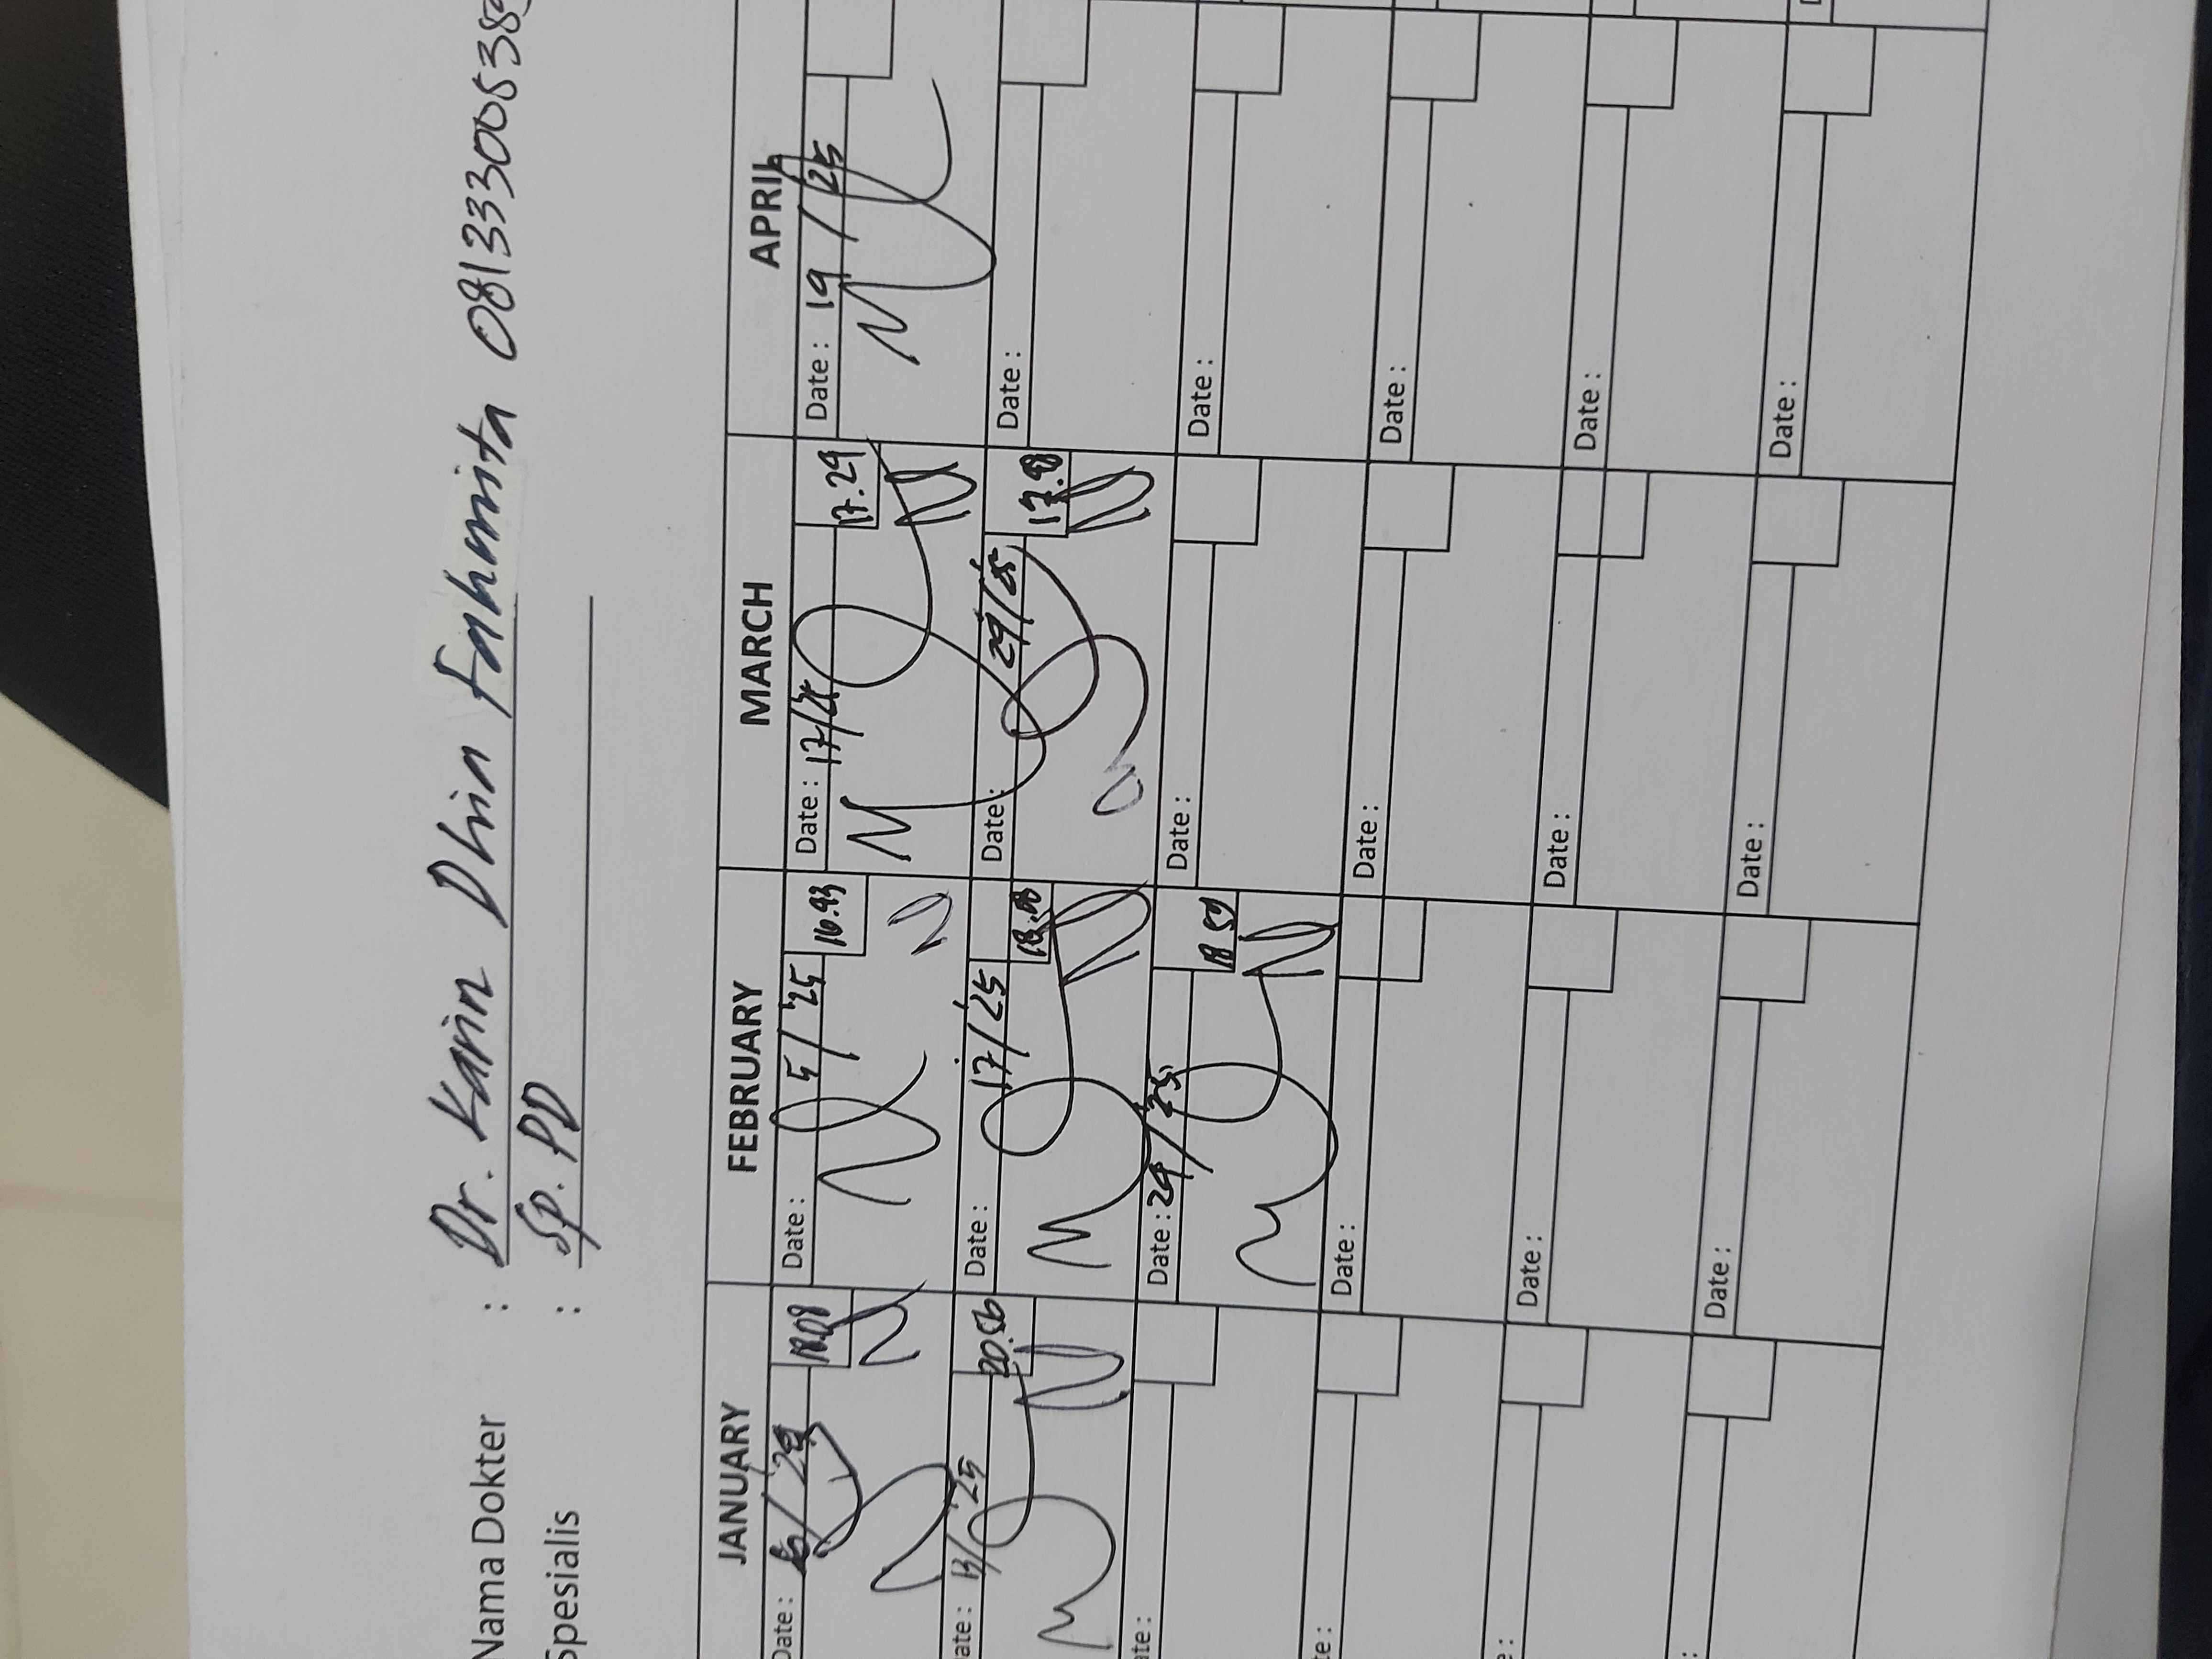 Nama Dokter : Dr. Karin Dhia Fahmita
Spesialis : Sp. PD
JANUARY FEBRUARY MARCH APRIL
Date : Date : 5 / '25 16.43 Date : 17/25 17.29 Date : 19 / 25
ate : 13/ '25 20.56 Date : 17 / '25 Date : 29/25 17.48 Date :
ate : Date : 24 / '25 Date : Date :
te : Date : Date : Date :
e : Date : Date : Date :
: Date : Date : Date :